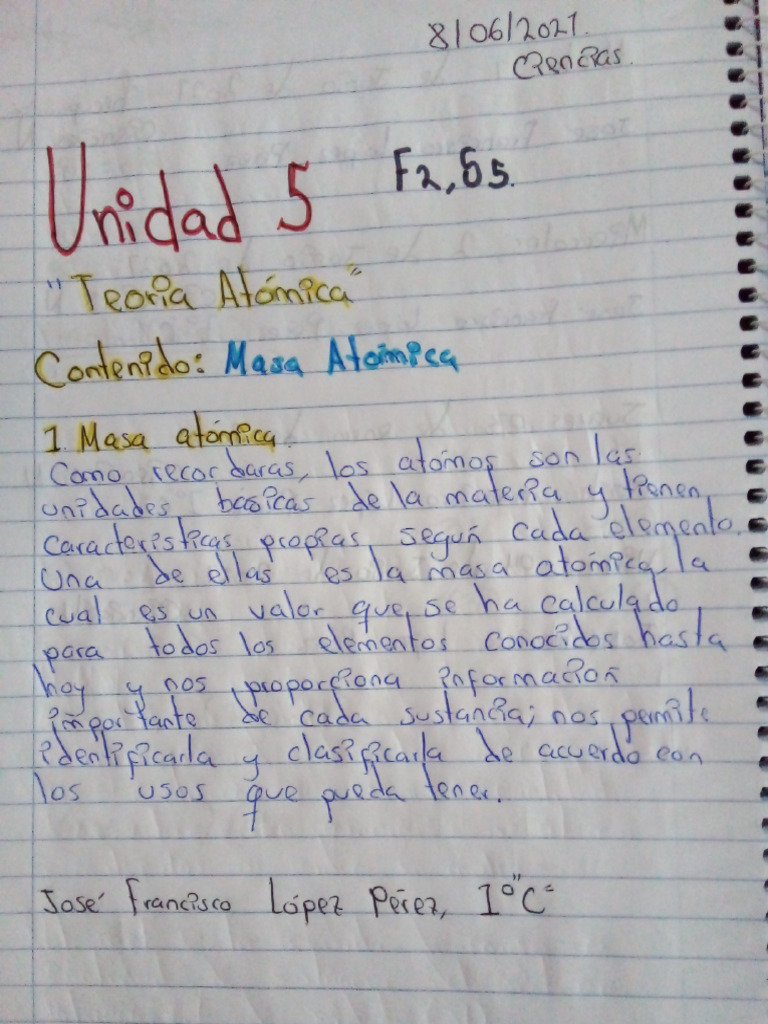 8/06/2021.
Ciencias.
Unidad 5 F2, G5.
"Teoria Atómica"
Contenido: Masa Atómica
1. Masa atómica.
Como recordaras, los atomos son las
unidades basicas de la materia y tienen
caracteristicas propias según cada elemento.
Una de ellas es la masa atómica, la
cual es un valor que se ha calculado
para todos los elementos conocidos hasta
hoy y nos proporciona información
importante de cada sustancia; nos permite
identificarla y clasificarla de acuerdo con
los usos que pueda tener.
José Francisco López Pérez, 1º "C"